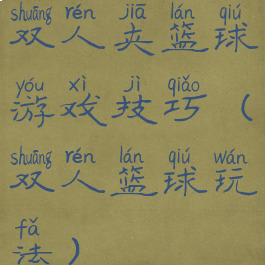 shuāng rén jiā lán qiú
双人夹篮球
yóu xì jì qiǎo
游戏技巧（
shuāng rén lán qiú wán
双人篮球玩
fǎ
法）